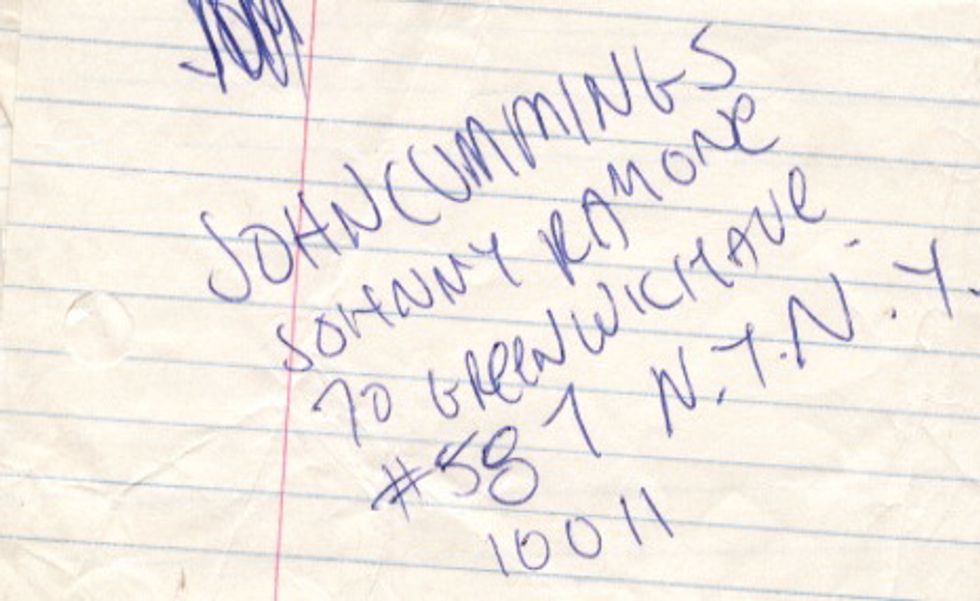 JOHN CUMMINGS
JOHNNY RAMONE
70 GREENWICH AVE
#587 N.Y.N.Y.
10011